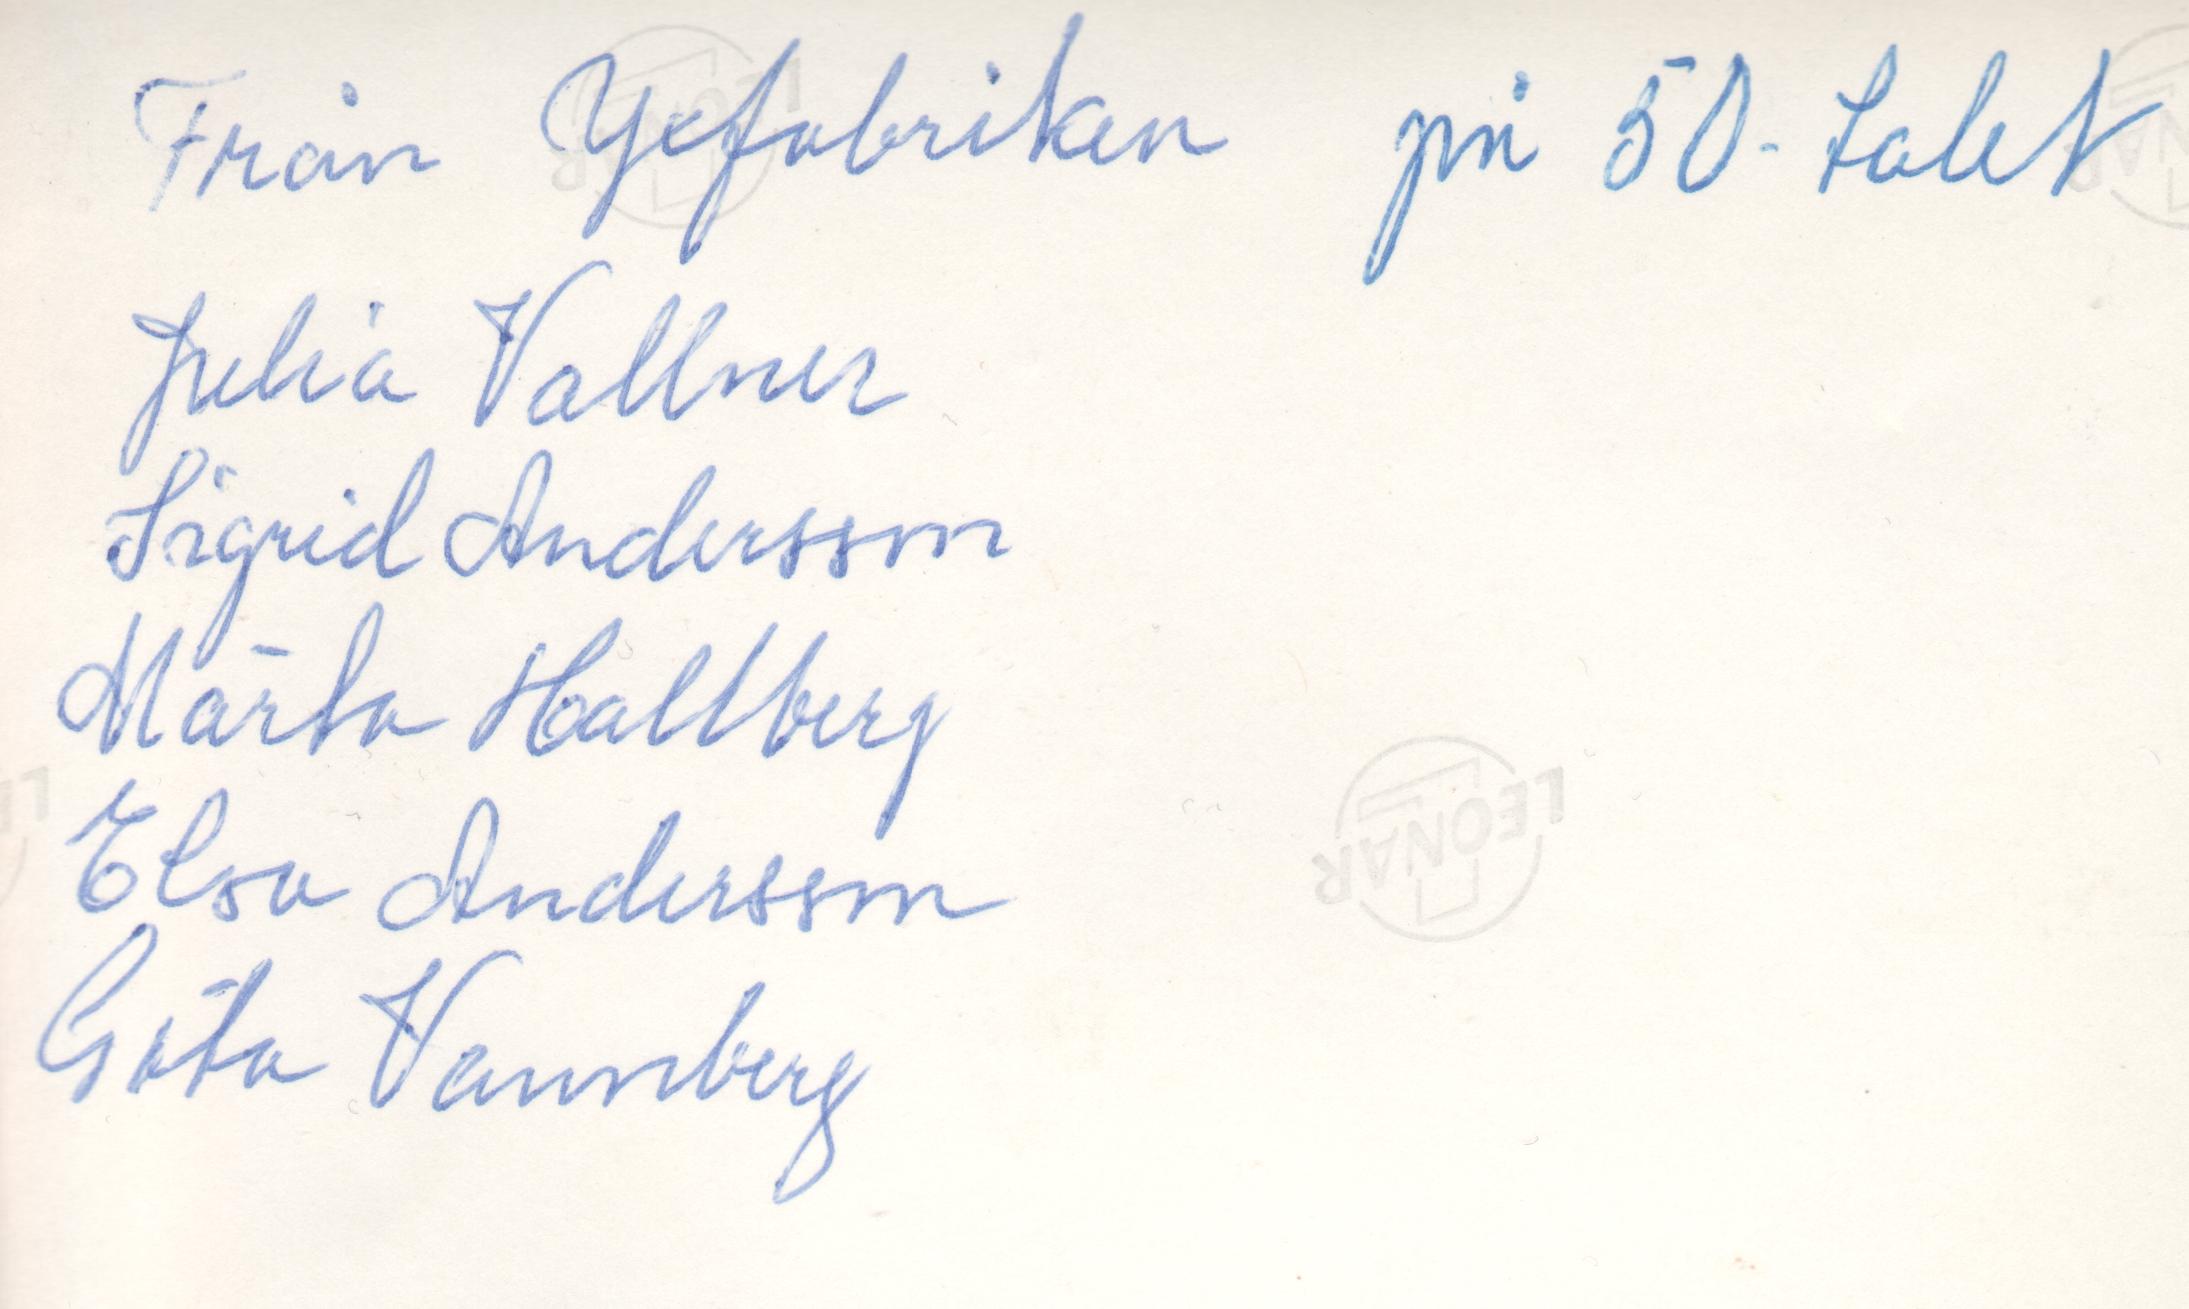 Från Yxfabriken på 50-talet
Julia Vallner
Sigrid Andersson
Märta Hallberg
Elsa Andersson
Göta Vennberg
LEONAR
LEONAR